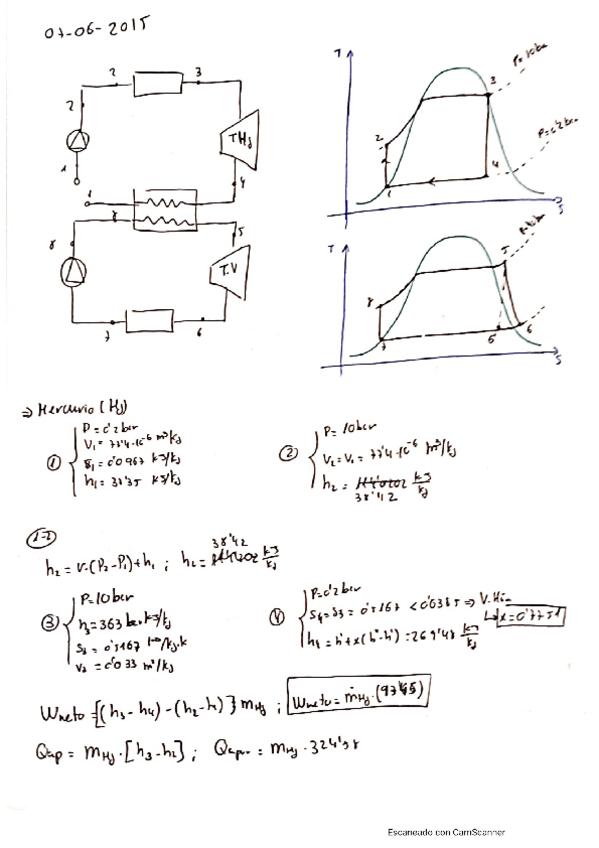 07-06-2015
2
3
2
T Hg
1
4
1
8
5
8
T.V
7
6
T
P=10bar
3
2
P=0'2bar
1
4
S
T
5
8
7
6
6
S
⇒ Mercurio (Hg)
① P=0'2bar
V₁= 77'4·10⁻⁶ m³/kg
S₁= 0'0967 kJ/kg
h₁= 38'35 kJ/kg
② P= 10bar
V₂=V₁= 77'4·10⁻⁶ m³/kg
h₂ = 38'42 kJ/kg
1-2
h₂ = v·(P₂-P₁)+h₁ ; h₂= 38'42 kJ/kg
③ P=10bar
h₃=363 kJ/kg
S₃ = 0'5167 /kg·k
V₃ = 0'033 m³/kg
④ P=0'2bar
S₄=S₃ = 0'5167 < 0'6385 ⇒ V.H
x=0'7751
h₄ = h'+x(h''-h')=269'48 kJ/kg
Wneto = [(h₃-h₄)-(h₂-h₁)] mHg ; Wneto = ṁHg·(93'45)
Qap = mHg·[h₃-h₂] ; Qap = mHg·324'58
Escaneado con CamScanner